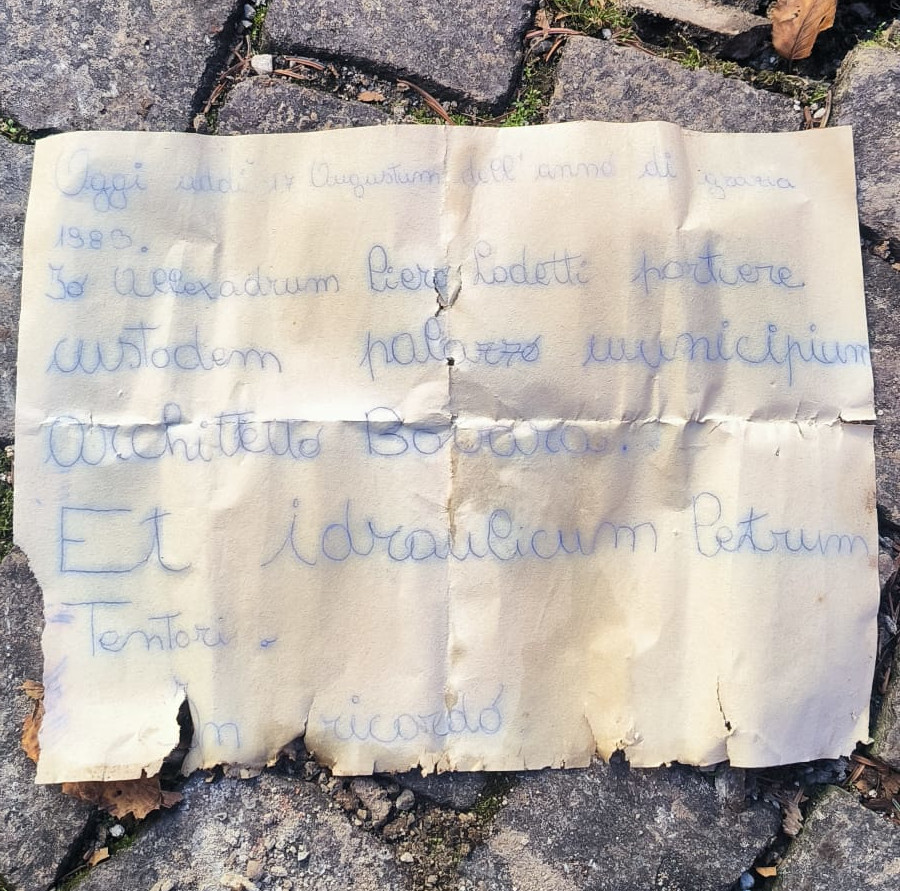 Oggi addì 17 Augustum dell' anno di grazia
1983.
Io Allexadrum Piero Lodetti portiere
custodem palazzo municipium
Architetto Bovara.
Et idraulicum Petrum
Tentori.
In ricordo